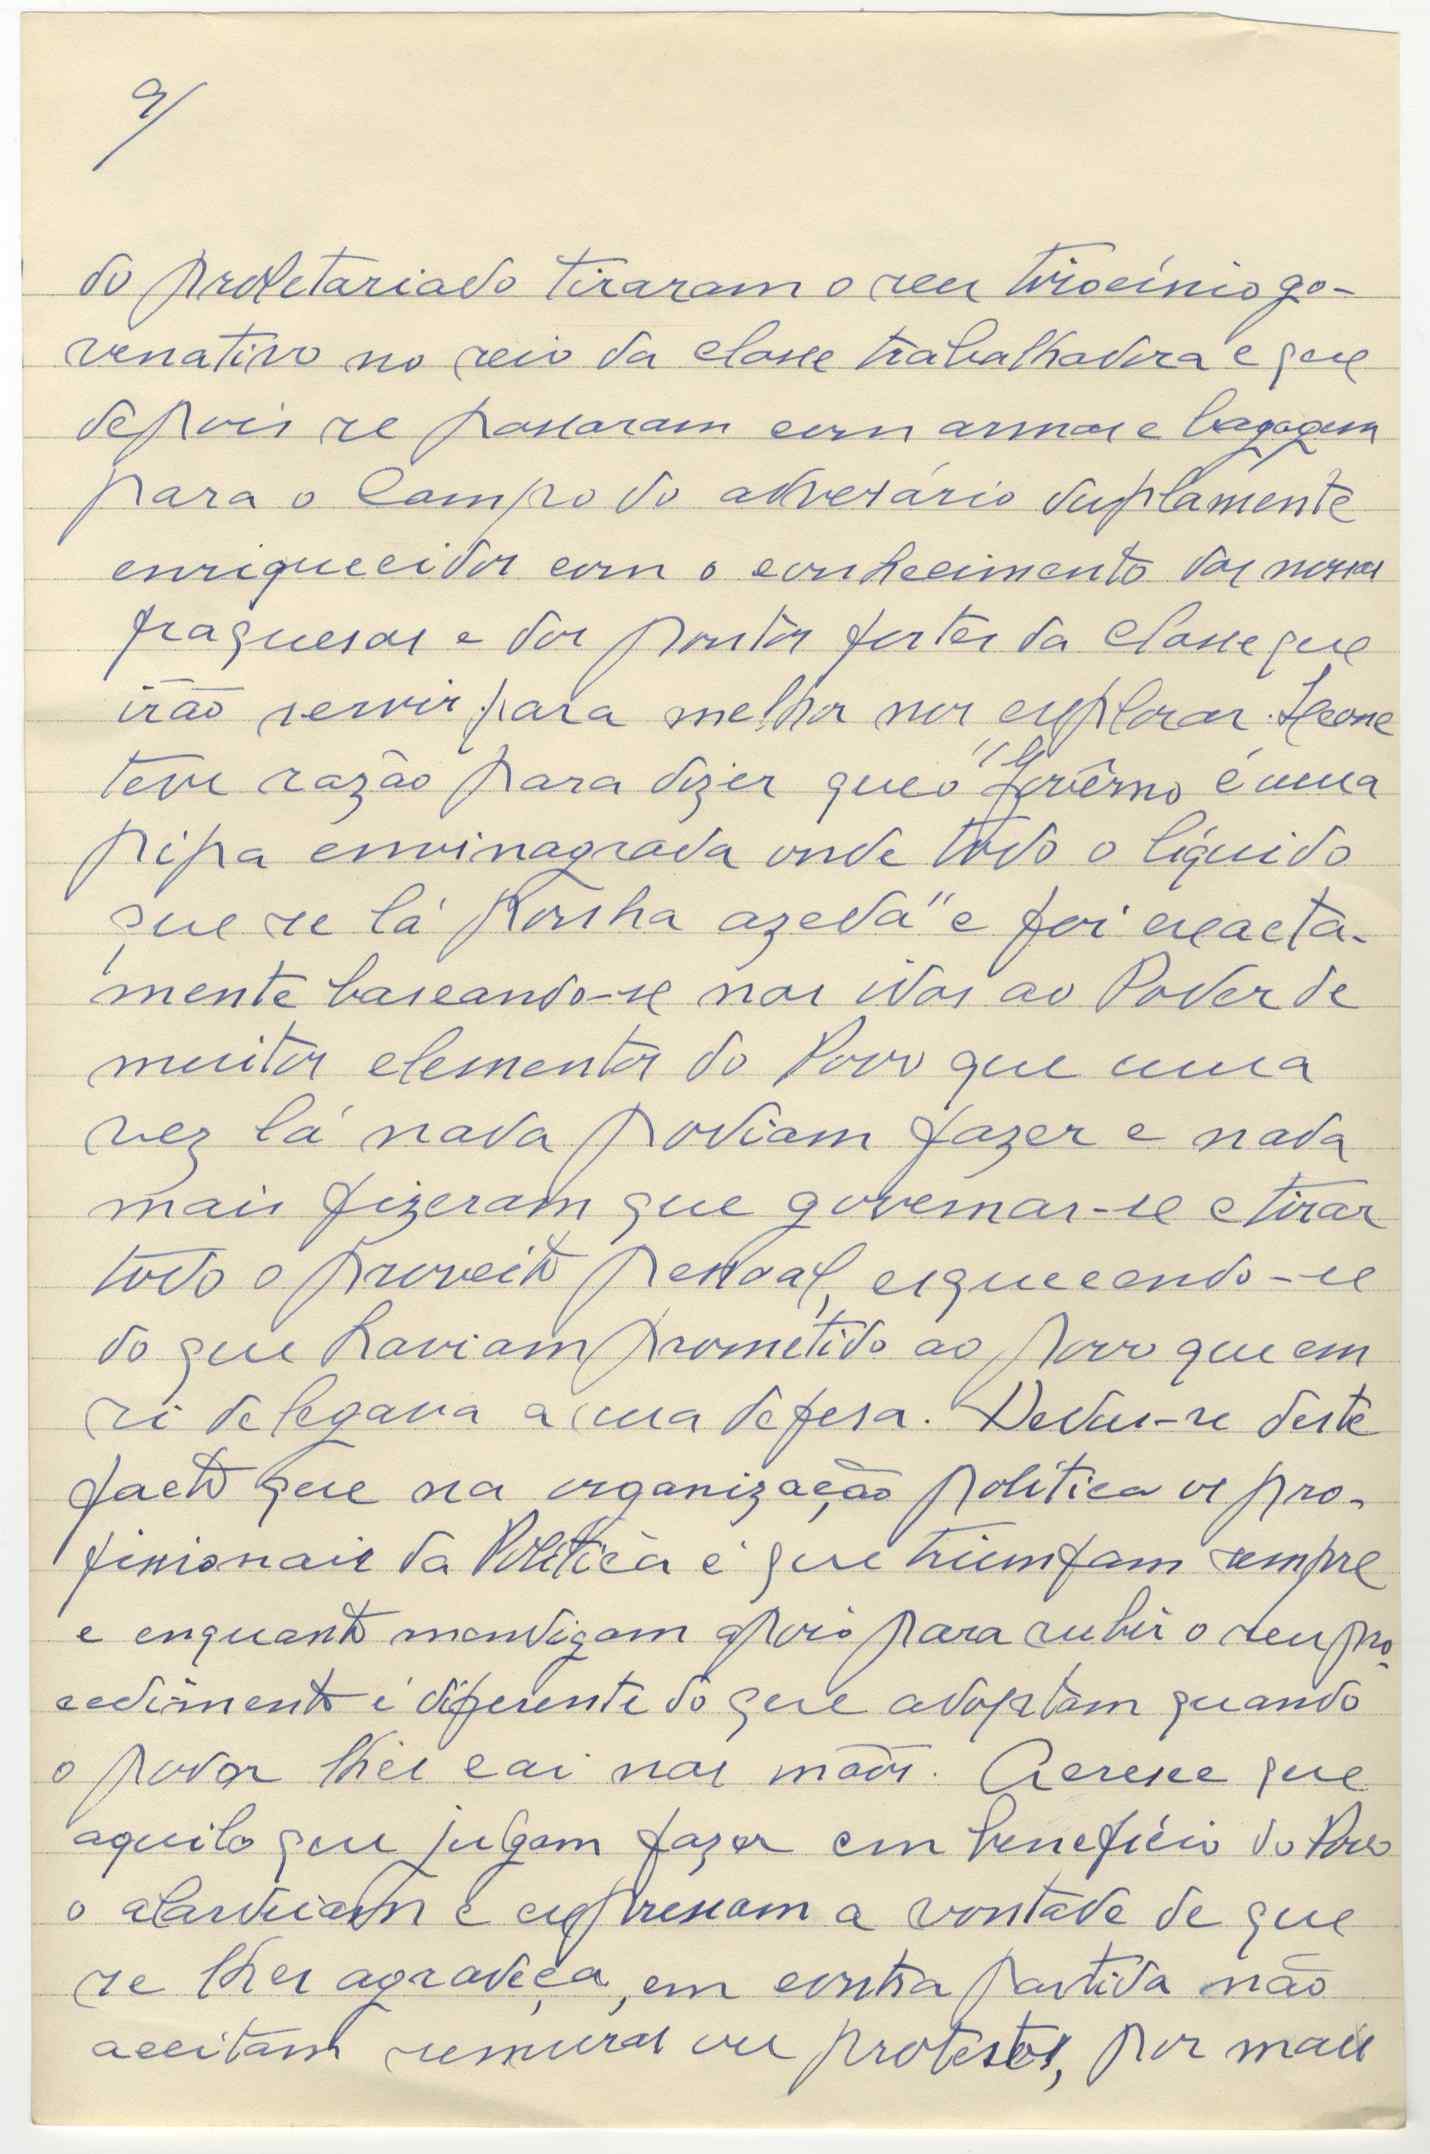 9/
do proletariado tiraram o seu tirocínio go-
venativo no seio da classe trabalhadora e que
depois se passaram com armas e bagagem
para o Campo do adversário duplamente
enriquecidos com o conhecimento das nossas
fraquesas e dos pontos fortes da classe que
irão servir para melhor nos explorar.
teve razão para dizer que o "Govêrno é uma
pipa envinagrada onde todo o líquido
que se lá ponha azeda" e foi exacta-
mente baseando-se nas idas ao Poder de
muitos elementos do Povo que uma
vez lá nada podiam fazer e nada
mais fizeram que governar-se e tirar
todo o proveito pessoal, esquecendo-se
do que haviam prometido ao povo que em
si delegava a sua defesa. Deduz-se deste
facto que na organização política os pro-
fissionais da Política é que triunfam sempre
e enquanto mendigam apoio para subir o seu pro-
cedimento é diferente do que adoptam quando
o poder lhes cai nas mãos. Acresce que
aquilo que julgam fazer em benefício do Povo
o alardeiam e expressam a vontade de que
se lhes agradeça, em contra partida não
aceitam censuras ou protestos, por mais